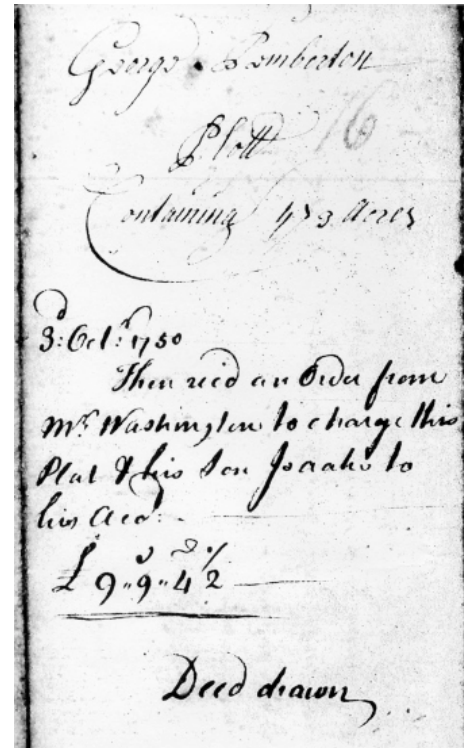 George Pemberton
16
Plott
Containing 473 Acres
3d: Octr: 1750
Then recd an Order from
Mr. Washington to charge this
Plat & his Son Isaahs to
his Acct.
£ 9"9"4 1/2
Deed drawn